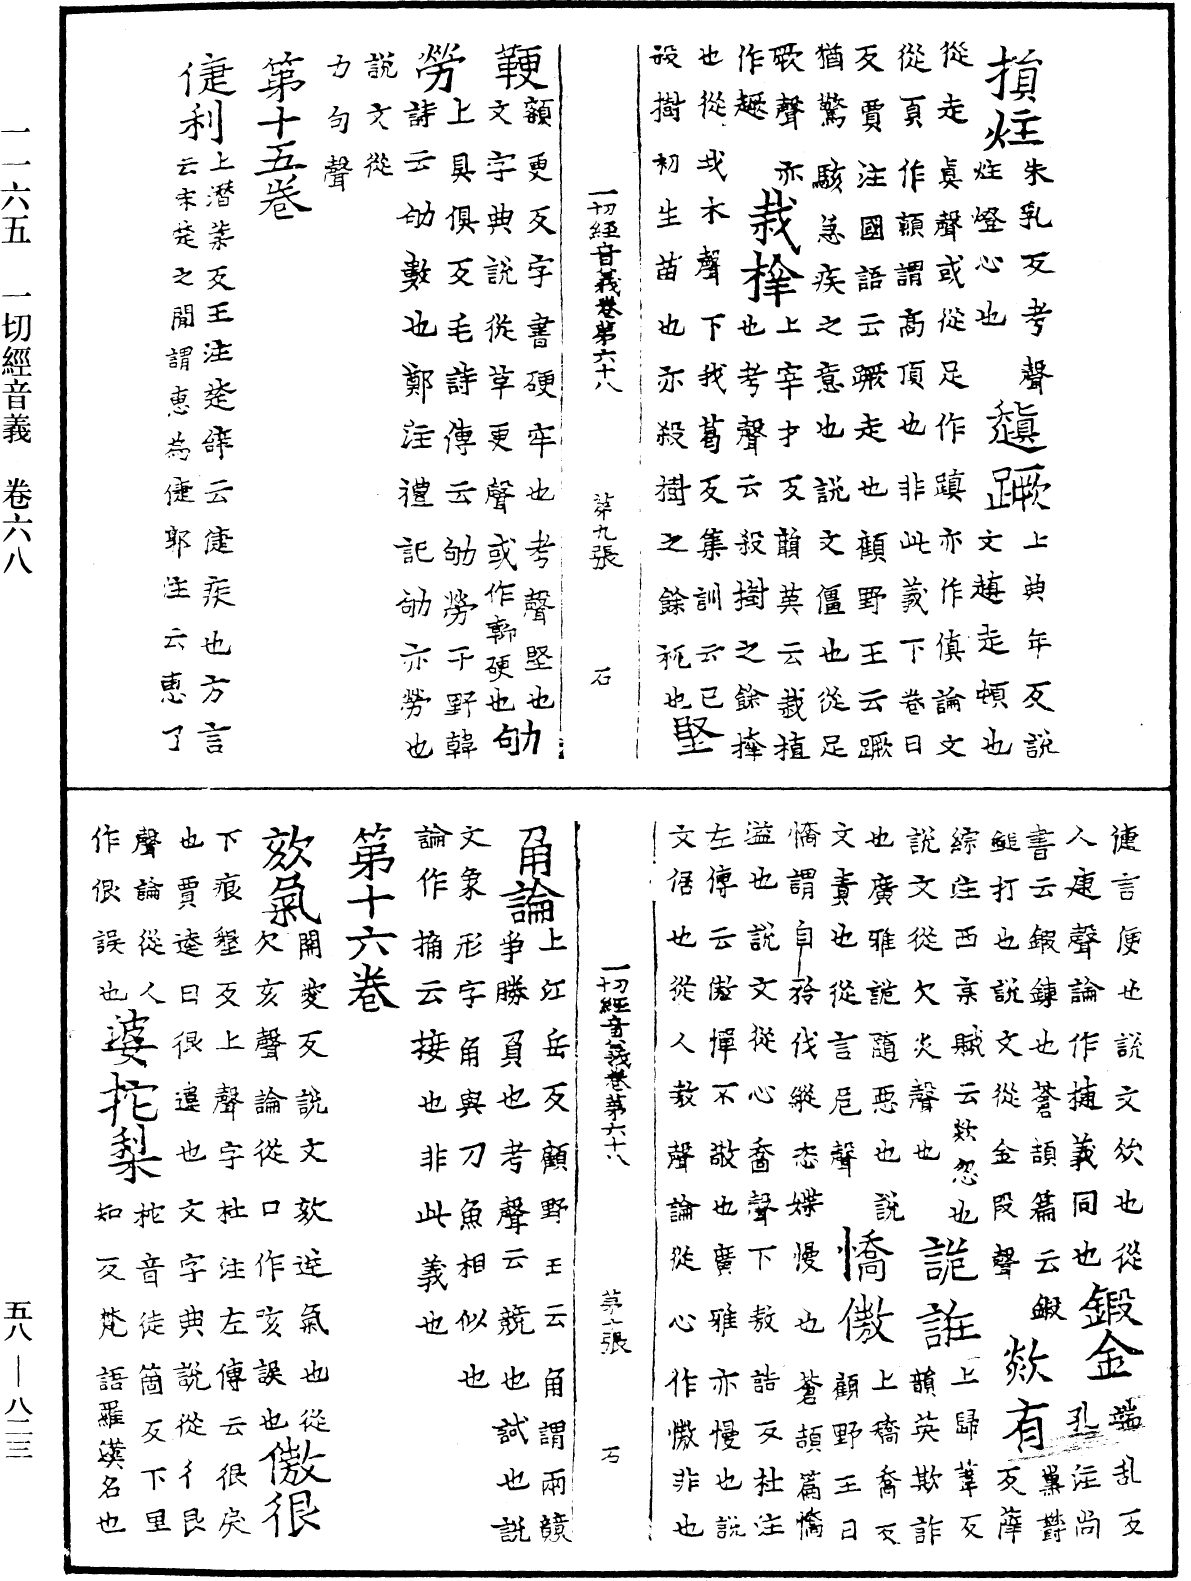 一一六五　一切經音義　卷六八
五八—八二三
損炷朱乳反考聲炷燈心也𧽍蹶上典年反說文趚走頓也
從走真聲或從足作蹎亦作傎論文
從頁作顛謂高頂也非此義下卷曰
反賈注國語云蹶走也顧野王云蹶
猶驚駭急疾之意也說文僵也從足
厥聲亦作蹷栽榫上宰才反韻英云栽植
也考聲云殺樹之餘榫
也從𢦏木聲下我葛反集訓云已
殺樹初生苗也亦殺樹之餘秕也堅
一切經音義卷第六十八　第九張　石
鞕額更反字書硬牢也考聲堅也
文字典說從革更聲或作䩕硬也劬
勞上具俱反毛詩傳云劬勞于野韓
詩云劬數也鄭注禮記劬亦勞也
說文從
力句聲
第十五卷
倢利上潛葉反王注楚辭云倢疾也方言
云宋楚之閒謂惠為倢郭注云惠了
倢言便也說文佽也從
人疌聲論作捷義同也鍛金端乱反孔注尚
書云鍛鍊也蒼頡篇云鍛
鎚打也說文從金段聲欻有薰欝反薛
綜注西京賦云欻忽也
說文從欠炎聲也詭誑上歸葦反韻英欺詐
也廣雅詭隨惡也說
文責也從言危聲憍傲上矯喬反顧野王曰
憍謂自矜伐縱恣媟慢也蒼頡篇憍
溢也說文從心喬聲下敖誥反杜注
左傳云傲憚不敬也廣雅亦慢也說
文倨也從人敖聲論從心作憿非也
一切經音義卷第六十八　第十張　石
角論上江岳反顧野王云角謂兩競
爭勝負也考聲云競也試也說
文象形字角與刀魚相似也
論作捔云接也非此義也
第十六卷
欬氣開愛反說文欬逆氣也從
欠亥聲論從口作咳誤也傲很
下痕墾反上聲字杜注左傳云很戾
也賈逵曰很違也文字典說從彳艮
聲論從人作佷誤也婆柁梨柁音徒箇反下里
知反梵語羅漢名也